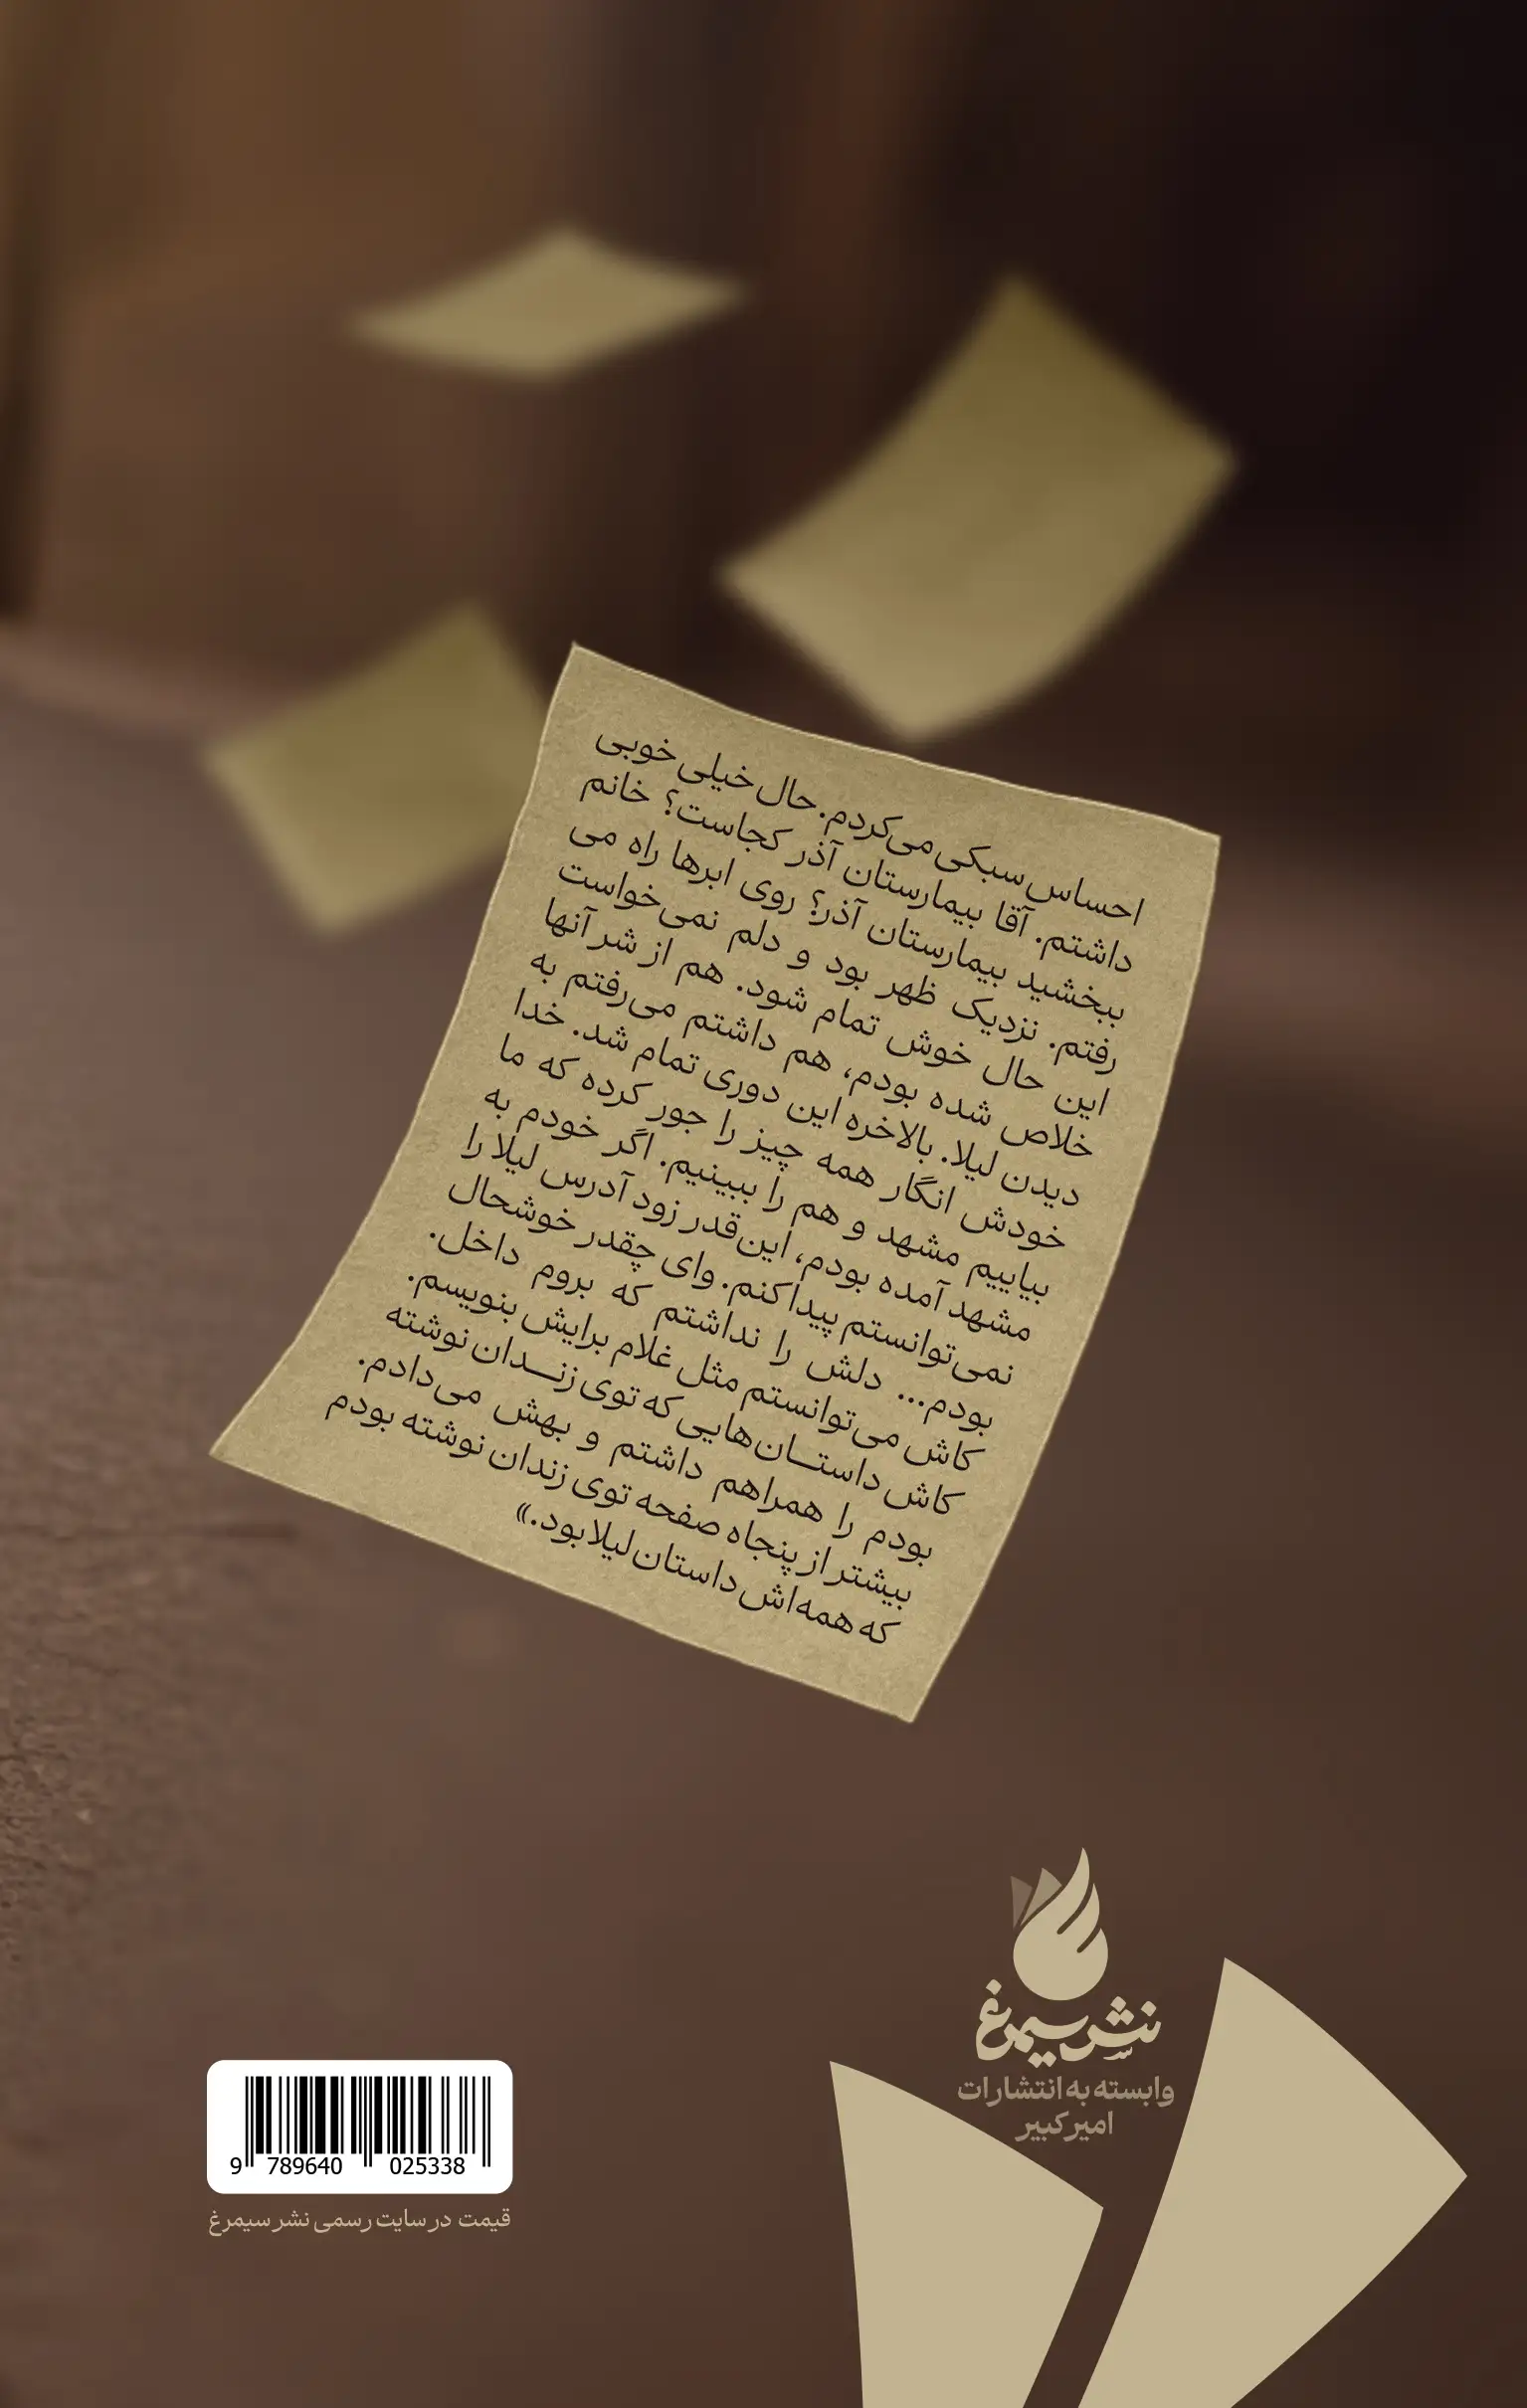 احساس سبکی می‌کردم. حال خیلی خوبی
داشتم. آقا بیمارستان آذر کجاست؟ خانم
ببخشید بیمارستان آذر؟ روی ابرها راه می
رفتم. نزدیک ظهر بود و دلم نمی‌خواست
این حال خوش تمام شود. هم از شر آنها
خلاص شده بودم، هم داشتم می‌رفتم به
دیدن لیلا. بالاخره این دوری تمام شد. خدا
خودش انگار همه چیز را جور کرده که ما
بیاییم مشهد و هم را ببینیم. اگر خودم به
مشهد آمده بودم، این‌قدر زود آدرس لیلا را
نمی‌توانستم پیدا کنم. وای چقدر خوشحال
بودم... دلش را نداشتم که بروم داخل.
کاش می‌توانستم مثل غلام برایش بنویسم.
کاش داستان‌هایی که توی زندان نوشته
بودم را همراهم داشتم و بهش می‌دادم.
بیشتر از پنجاه صفحه توی زندان نوشته بودم
که همه‌اش داستان لیلا بود.»
نشر سیمرغ
وابسته به انتشارات
امیرکبیر
9 789640 025338
قیمت در سایت رسمی نشر سیمرغ